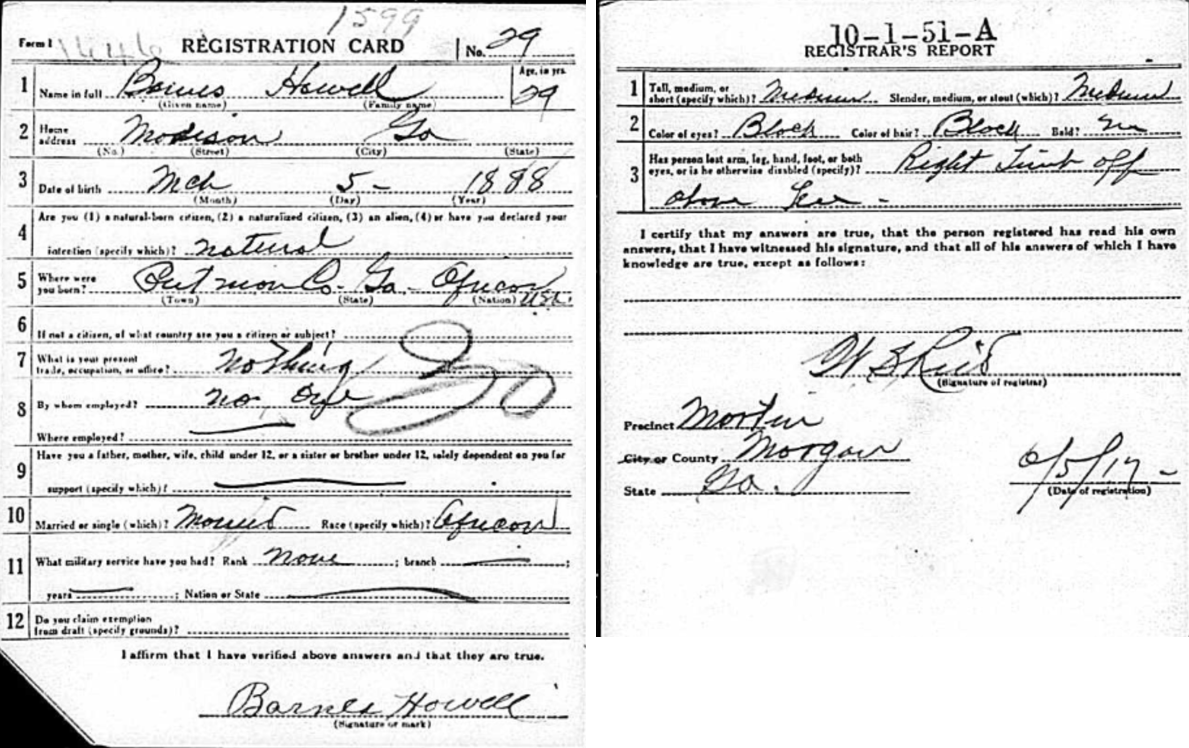 1599
Form 1 1646 REGISTRATION CARD No. 29
1 Name in full Barnes Howell Age, in yrs. 29
(Given name) (Family name)
2 Home address Madison Ga
(No.) (Street) (City) (State)
3 Date of birth Mch 5- 1888
(Month) (Day) (Year)
4 Are you (1) a natural-born citizen, (2) a naturalized citizen, (3) an alien, (4) or have you declared your
intention (specify which)? natural
5 Where were you born? Putman Co- Ga- African USA.
(Town) (State) (Nation)
6 If not a citizen, of what country are you a citizen or subject?
7 What is your present trade, occupation, or office? nothing
8 By whom employed? no one
Where employed?
9 Have you a father, mother, wife, child under 12, or a sister or brother under 12, solely dependent on you for
support (specify which)?
10 Married or single (which)? Married Race (specify which)? African
11 What military service have you had? Rank none ; branch ;
years ; Nation or State
12 Do you claim exemption from draft (specify grounds)?
I affirm that I have verified above answers and that they are true.
Barnes Howell
(Signature or mark)
10-1-51-A
REGISTRAR'S REPORT
1 Tall, medium, or short (specify which)? Medium Slender, medium, or stout (which)? Medium
2 Color of eyes? Black Color of hair? Black Bald? no
3 Has person lost arm, leg, hand, foot, or both eyes, or is he otherwise disabled (specify)? Right Limb off
above
I certify that my answers are true, that the person registered has read his own
answers, that I have witnessed his signature, and that all of his answers of which I have
knowledge are true, except as follows:
(Signature of registrar)
Precinct
City or County Morgan
State Ga. 6/5/17-
(Date of registration)